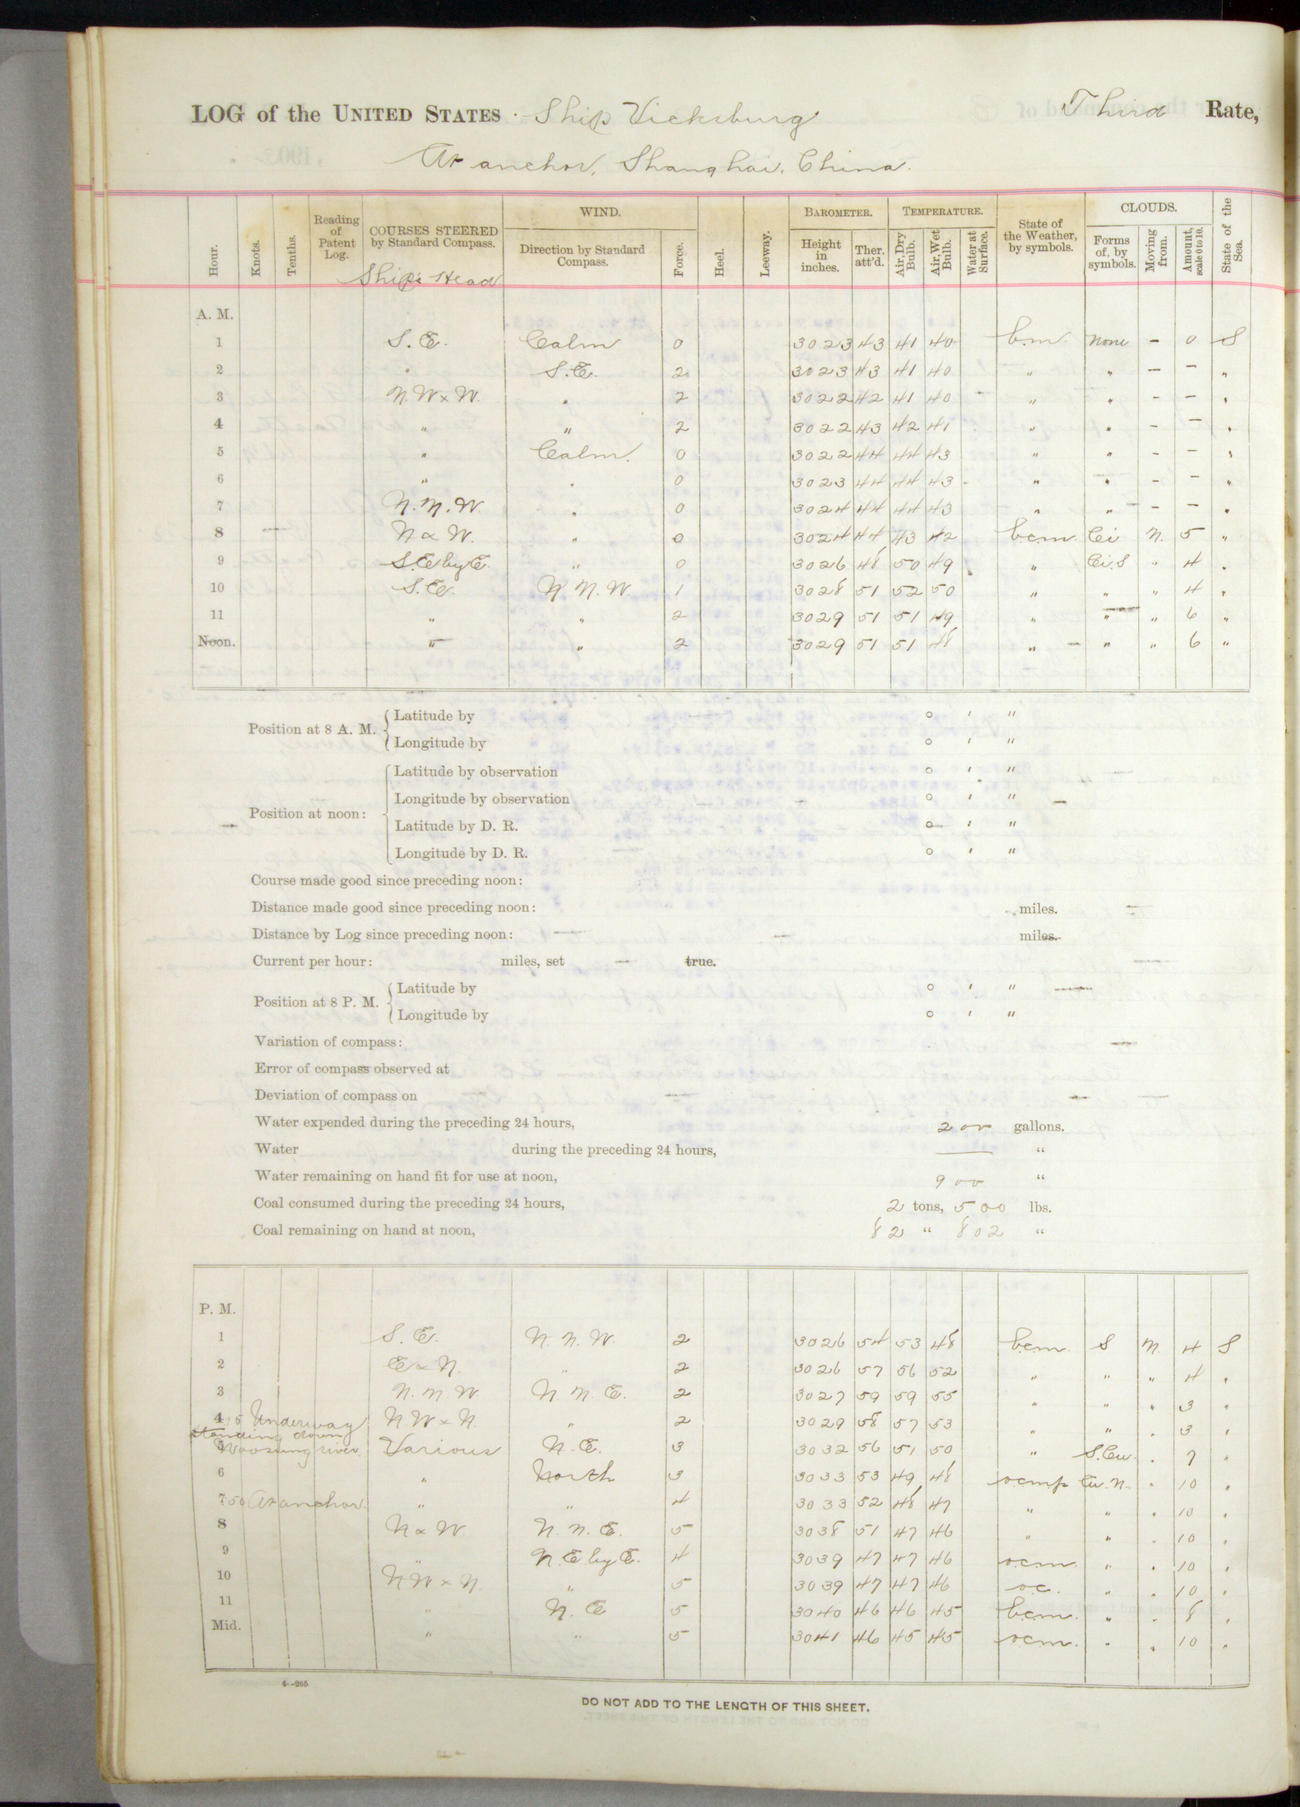 LOG of the UNITED STATES Ship Vicksburg Third Rate,
At anchor, Shanghai, China.
Hour. Knots. Tenths. Reading of Patent Log. COURSES STEERED by Standard Compass. WIND. Direction by Standard Compass. Force. Heel. Leeway. BAROMETER. Height in inches. Ther. att'd. TEMPERATURE. Air, Dry Bulb. Air, Wet Bulb. Water at Surface. State of the Weather, by symbols. CLOUDS. Forms of, by symbols. Moving from. Amount, scale 0 to 10. State of the Sea.
Ship's Head
A. M.
1 S. E. Calm 0 3023 43 41 40 bm None - 0 S
2 " S.E. 2 3023 43 41 40 " " - - "
3 N.W x W. " 2 3022 42 41 40 " " - - "
4 " " 2 3022 43 42 41 " " - - "
5 " Calm. 0 3022 44 44 43 " " - - "
6 " " 0 3023 44 44 43 " " - - "
7 N.N.W. " 0 3024 44 44 43 " " - - "
8 N x W. " 0 3024 44 43 42 bcm Ci N. 5 "
9 S.E by E. " 0 3026 48 50 49 " Ci.S " 4 "
10 S.E. N.N.W 1 3028 51 52 50 " " " 4 "
11 " " 2 3029 51 51 49 " " " 6 "
Noon. " " 2 3029 51 51 48 " " " 6 "
Position at 8 A. M. Latitude by ° ' "
Longitude by ° ' "
Position at noon: Latitude by observation ° ' "
Longitude by observation ° ' "
Latitude by D. R. ° ' "
Longitude by D. R. ° ' "
Course made good since preceding noon:
Distance made good since preceding noon: miles.
Distance by Log since preceding noon: miles.
Current per hour: miles, set true.
Position at 8 P. M. Latitude by ° ' "
Longitude by ° ' "
Variation of compass:
Error of compass observed at
Deviation of compass on
Water expended during the preceding 24 hours, 200 gallons.
Water during the preceding 24 hours, — "
Water remaining on hand fit for use at noon, 900 "
Coal consumed during the preceding 24 hours, 2 tons, 500 lbs.
Coal remaining on hand at noon, 82 " 802 "
P. M.
1 S. E. N. N. W. 2 3026 54 53 48 bcm. S N. 4 S
2 E x N. " 2 3026 57 56 52 " " " 4 "
3 N.N.W. N N E. 2 3027 59 59 55 " " " 3 "
4 15 Underway N W x N " 2 3029 58 57 53 " " " 3 "
standing down
5 Woosung river. Various N. E. 3 3032 56 51 50 " S.Cu. " 7 "
6 " North 3 3033 53 49 48 ocmp Cu.N. " 10 "
7 50 At anchor. " " 4 3033 52 48 47 " " " 10 "
8 N x W N. N. E. 5 3038 51 47 46 " " " 10 "
9 " N.E by E. 4 3039 47 47 46 ocm " " 10 "
10 N W x N. " 5 3039 47 47 46 oc. " " 10 "
11 " N. E 5 3040 46 46 45 bcm. " " 8 "
Mid. " " 5 3041 46 45 45 ocm. " " 10 "
6--265
DO NOT ADD TO THE LENGTH OF THIS SHEET.